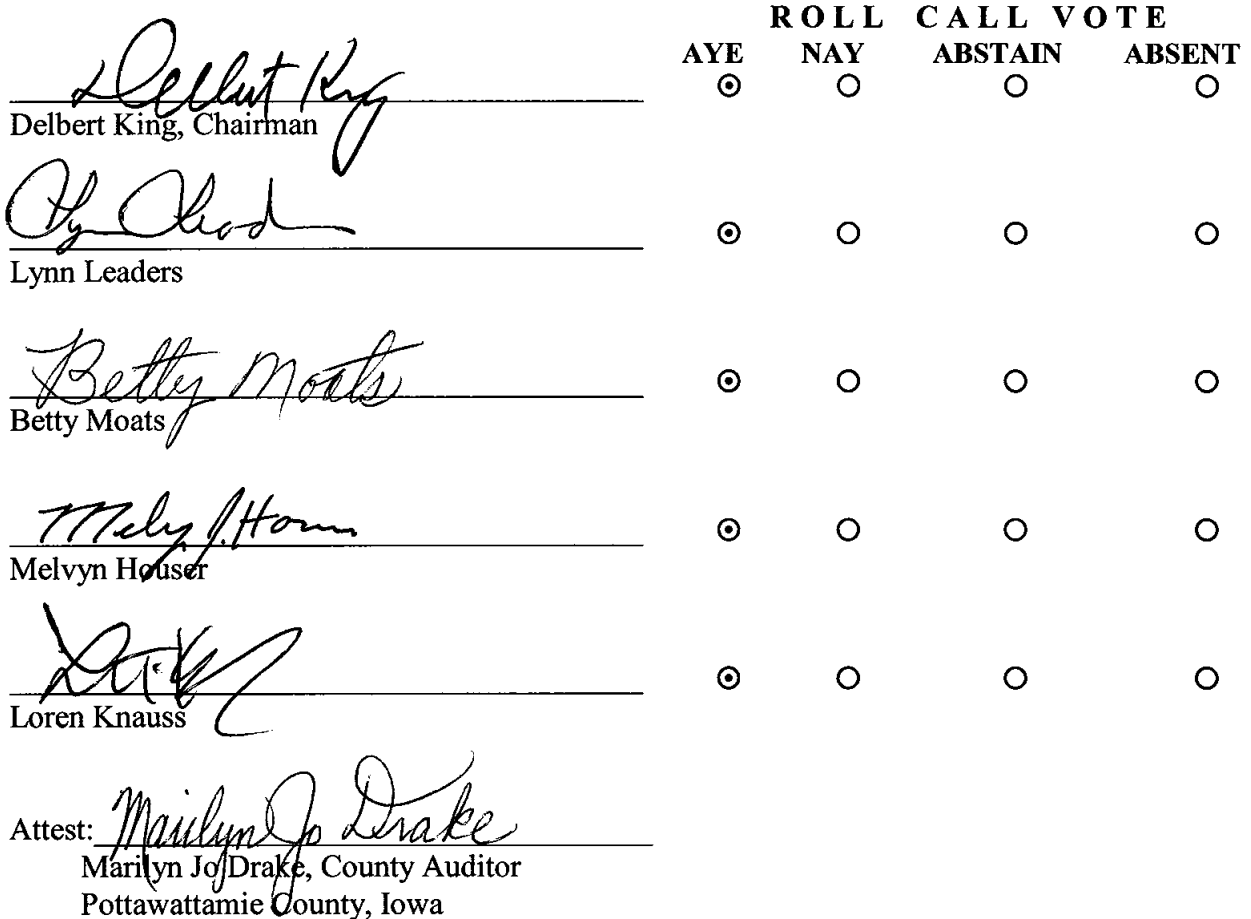 ROLL CALL VOTE
AYE NAY ABSTAIN ABSENT
Delbert King
Delbert King, Chairman
Lynn Leaders
Betty Moats
Betty Moats
Melvyn Houser
Loren Knauss
Attest: Marilyn Jo Drake
Marilyn Jo Drake, County Auditor
Pottawattamie County, Iowa